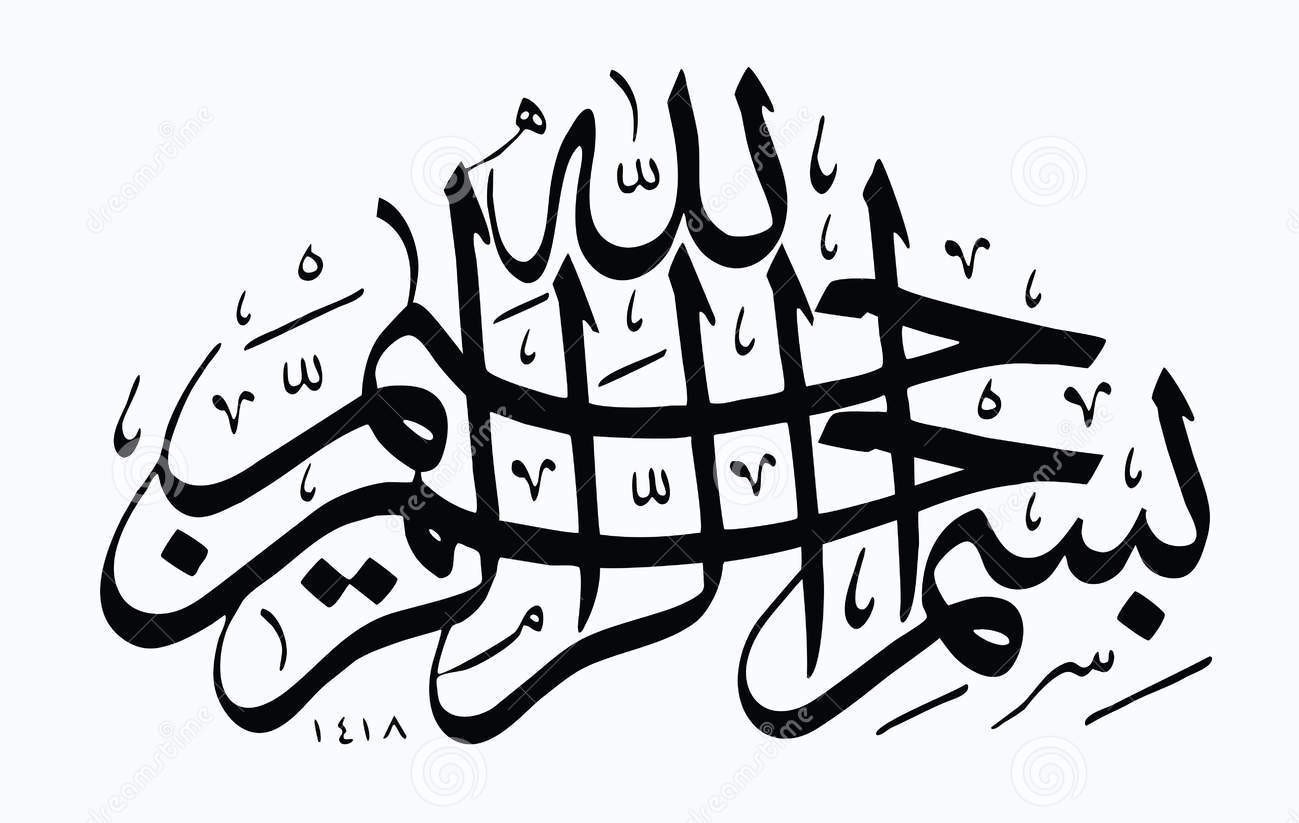 بِسْمِ اللهِ الرَّحْمٰنِ الرَّحِيمِ
١٤١٨
dreamstime